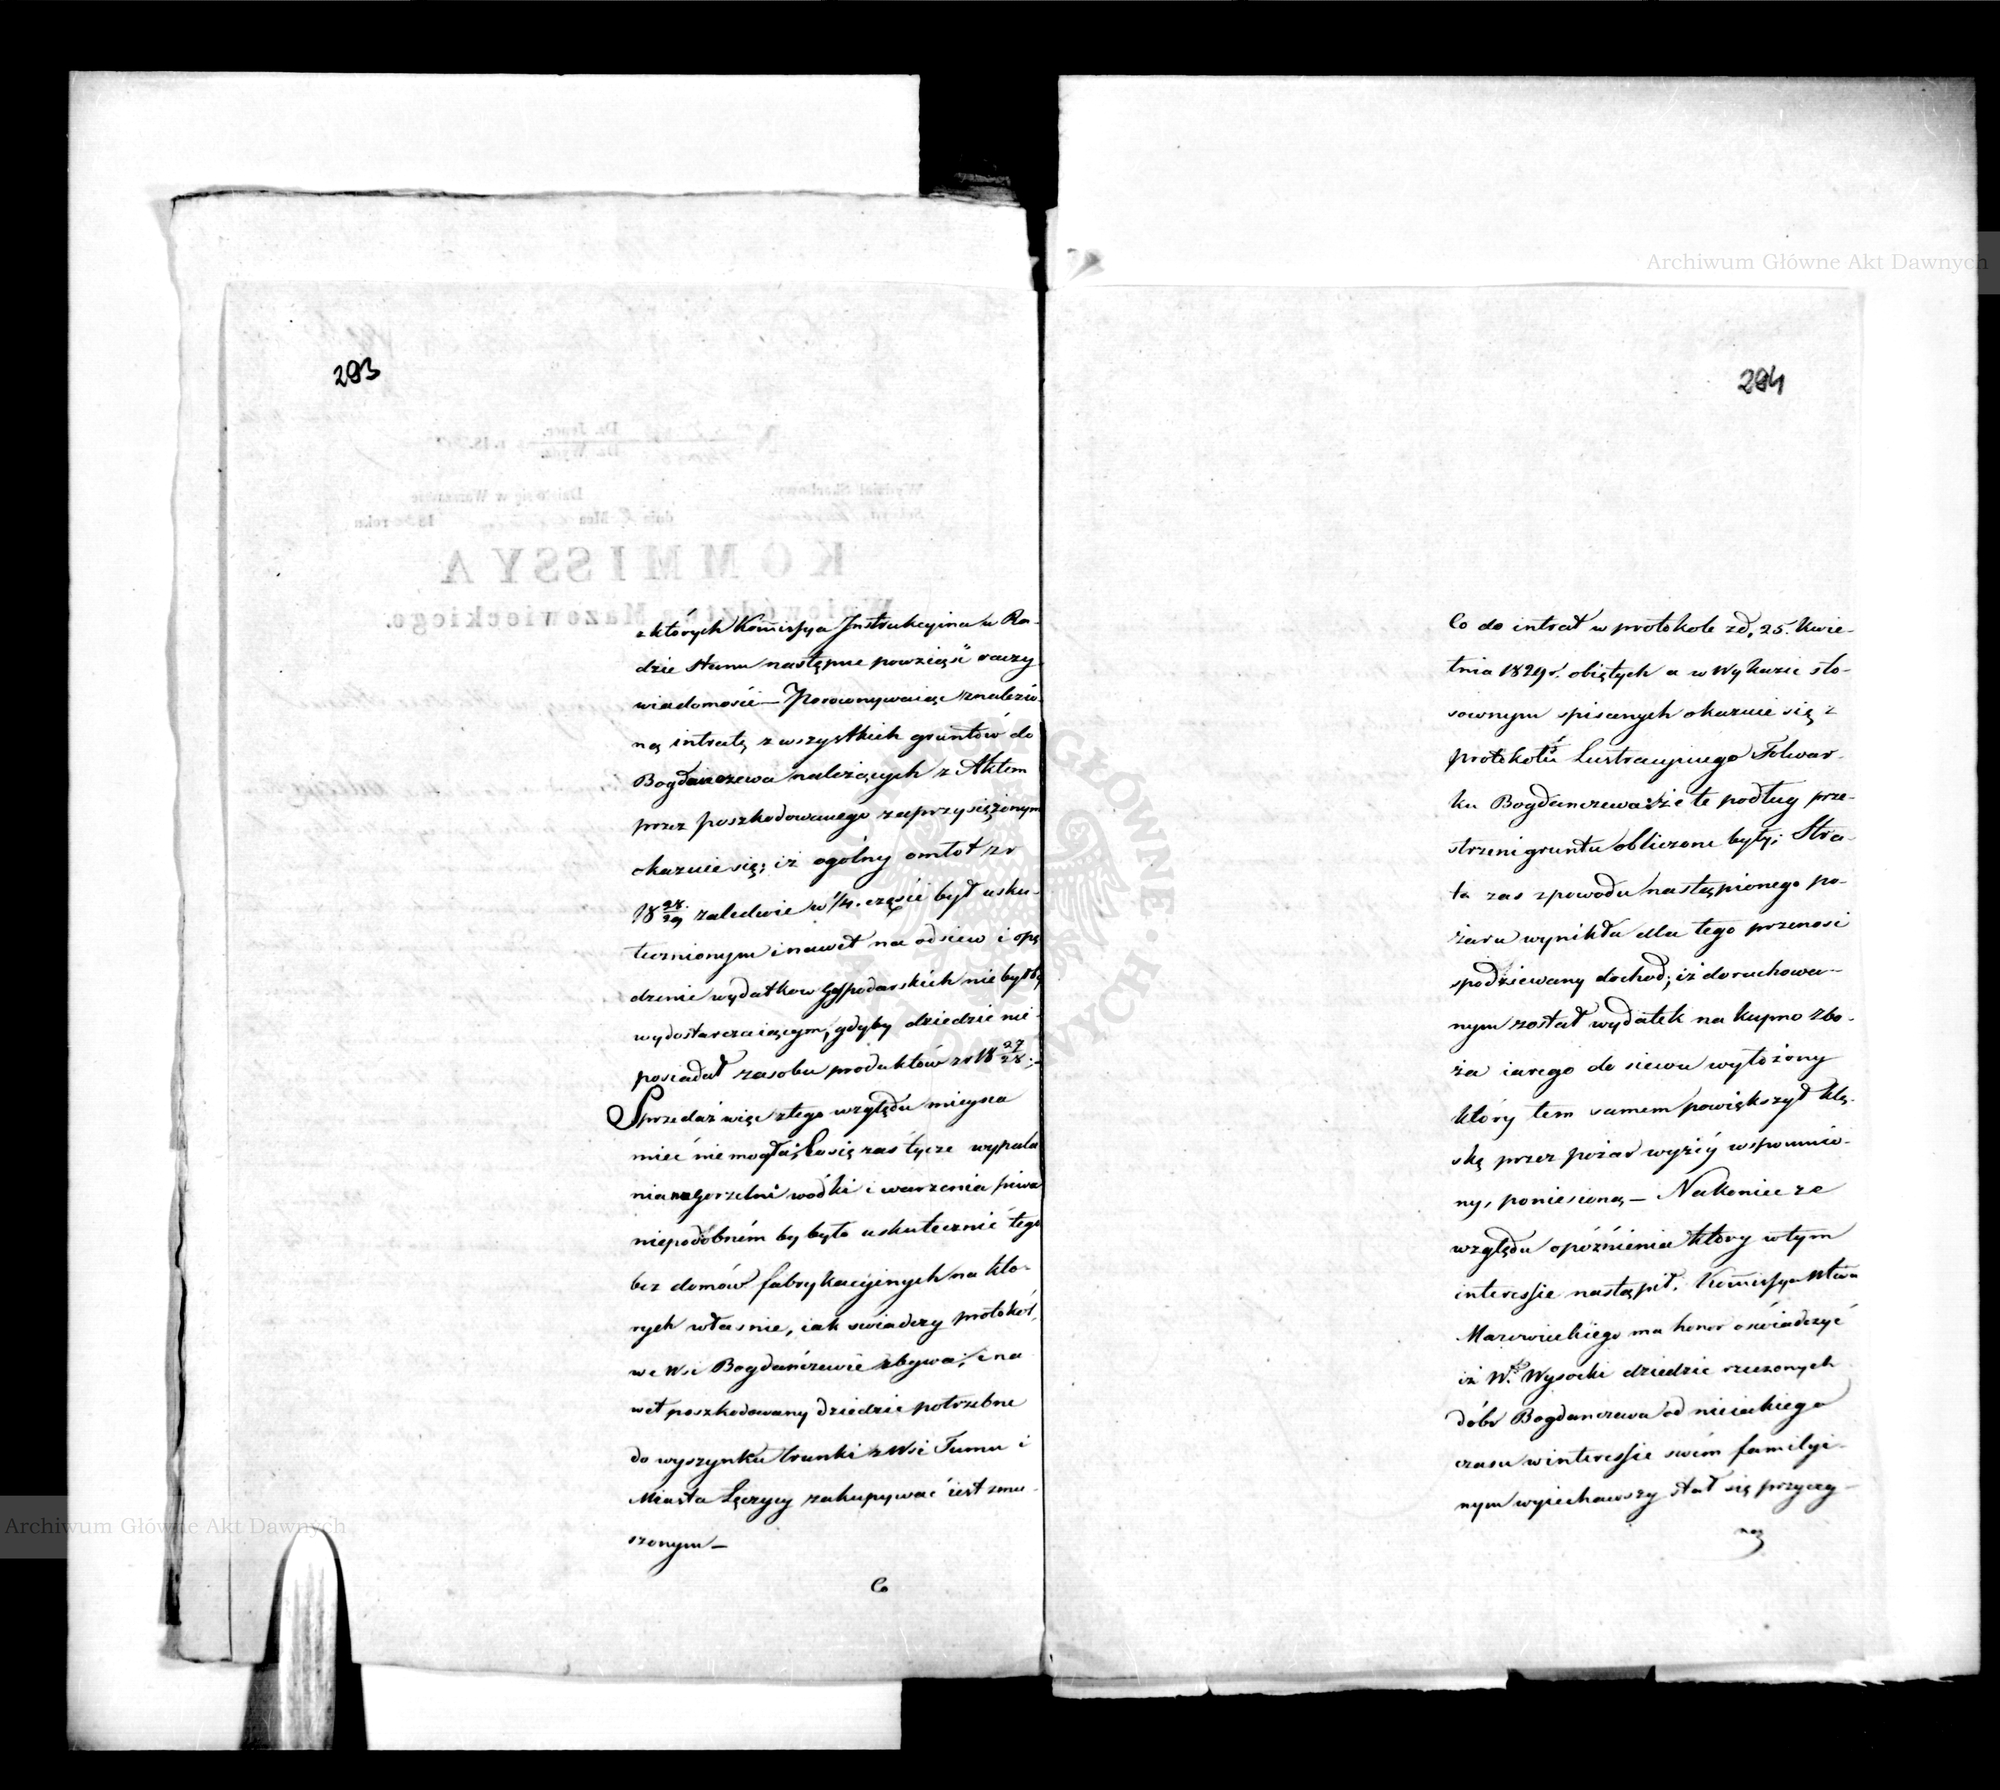 293
z których Kom̄issya Instrukcyina w Ra-
dzie Stanu następne powziąść raczy
wiadomości — Porownywaiąc znalezio-
ną intratę z wszystkich gruntów do
Bogdanczewa należących z Aktem
przez poszkodowanego zaprzysiężonym
okazuie się; iż ogólny omłot z r
18 28/29 zaledwie w 1/4. części był usku-
tecznionym i nawet na odsiew i opę
dzenie wydatkow Gospodarskich nie byłby
wydostarczaiącym, gdyby dziedzic nie
posiadał zasobu produktów z r 18 27/28;—
Sprzedaż więc z tego względu mieysca
mieć nie mogła; Co się zaś tycze wypala
nia na gorzelni wódki i warzenia piwa
niepodobném by było uskutecznić tego
bez domów fabrykacyinych na któ-
rych właśnie, iak swiadczy protokół,
we Wsi Bogdańczewie zbywa; i na
wet poszkodowany dziedzic potrzebne
do wyszynku trunki z Wsi Tumu i
Miasta Łęczycy zakupywać iest zmu-
szonym —
Co
284
Co do intrat w protokole z d. 25. Kwie-
tnia 1829 r. obiętych a w Wykazie sto-
sownym spisanych okazuie się z
protokołu Lustracyinego Folwar-
ku Bogdanczewa że te podług prze-
strzeni gruntu obliczone były; Stra-
ta zas z powodu nastąpionego po-
żaru wynikła dla tego przenosi
spodziewany dochod; iż dorachowa-
nym został wydatek na kupno zbo-
ża iarego do siewu wyłożony
który tem samem powiększył klę-
skę przez pożar wyżéy wspomnio-
ny, poniesioną — Nakoniec ze
względu opóźnienia który w tym
interessie nastąpił. Kom̄issya Wtwa
Mazowieckiego ma honor oświadczyć
iż W. Wysocki dziedzic rzeczonych
dóbr Bogdanczewa od nieiakiego
czasu w interessie swém familyi-
nym wyiechawszy stał się przyczy-
ną
KOMMISSYA
Województwa Mazowieckiego.
Archiwum Główne Akt Dawnych
Archiwum Główne Akt Dawnych